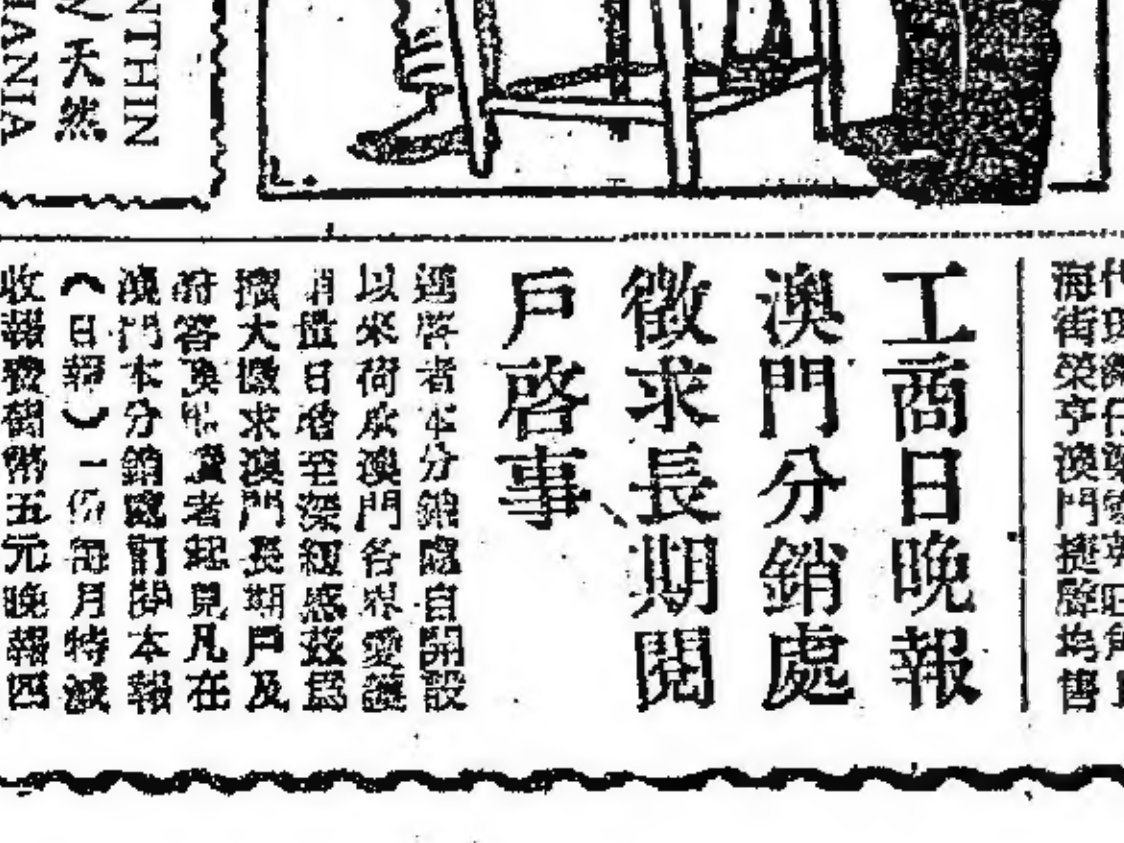 海街榮亨澳門捷聲塢售
工商日晚報
澳門分銷處
徵求長期閱
戶啓事
逕啓者本分銷處自開設
以來荷承澳門各界愛護
銷量日增至深紉感茲爲
擴大徵求澳門長期戶及
府答 者起見凡在
澳門本分銷處訂閱本報
（日報）一份每月特減
收報費國幣五元晚報四
NTHIN
天然
HANIA